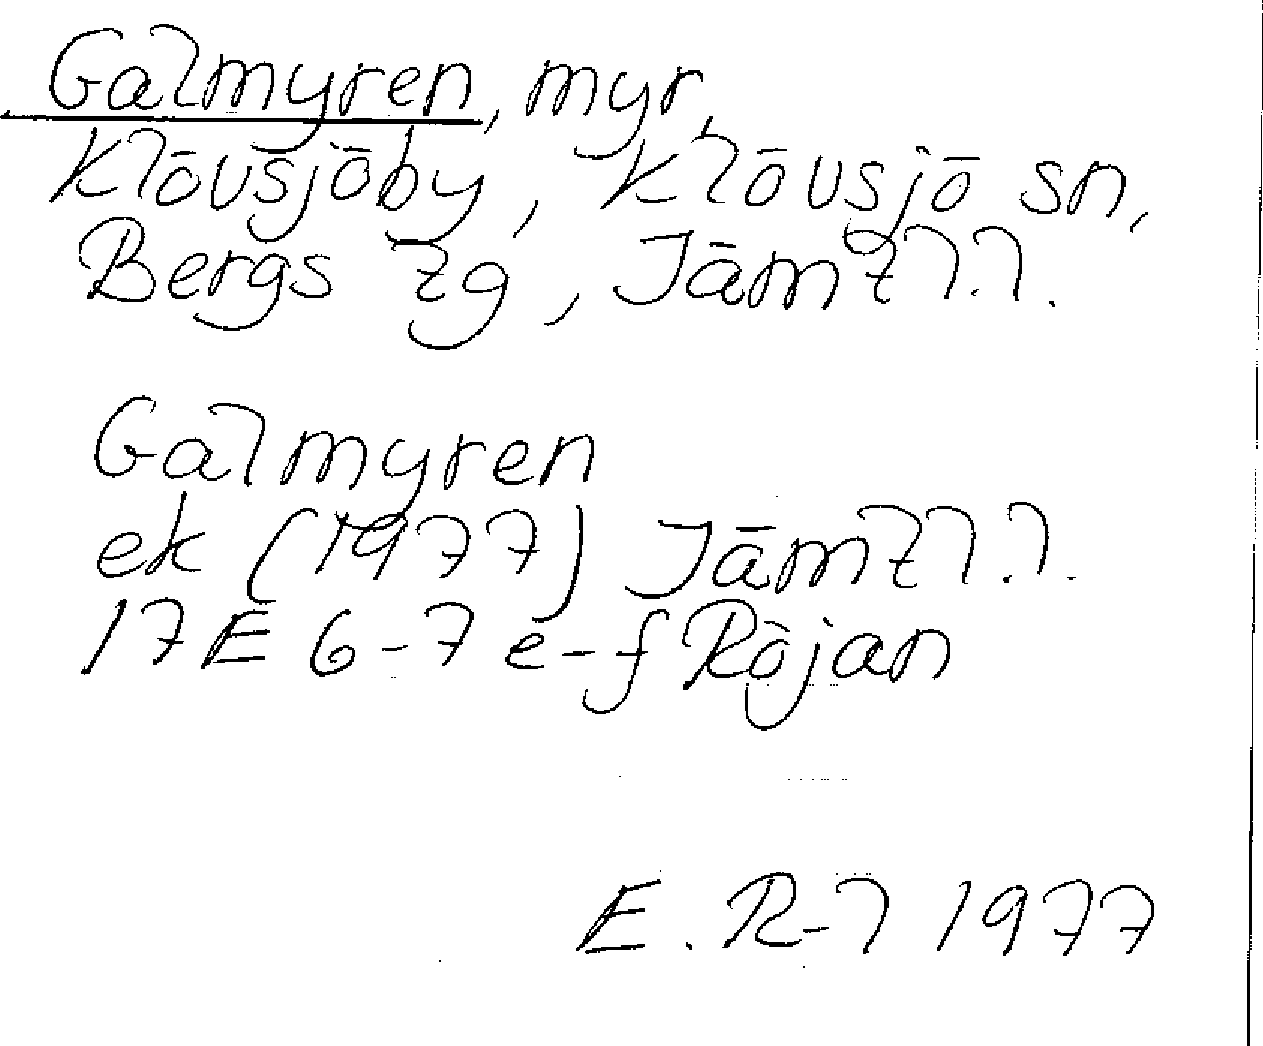 Galmyren, myr,
Klövsjöby, Klövsjö sn,
Bergs tg, Jämtl.l.
Galmyren
ek (1977) Jämtl.l.
17E 6-7 e-f Röjan
E. R-l 1977